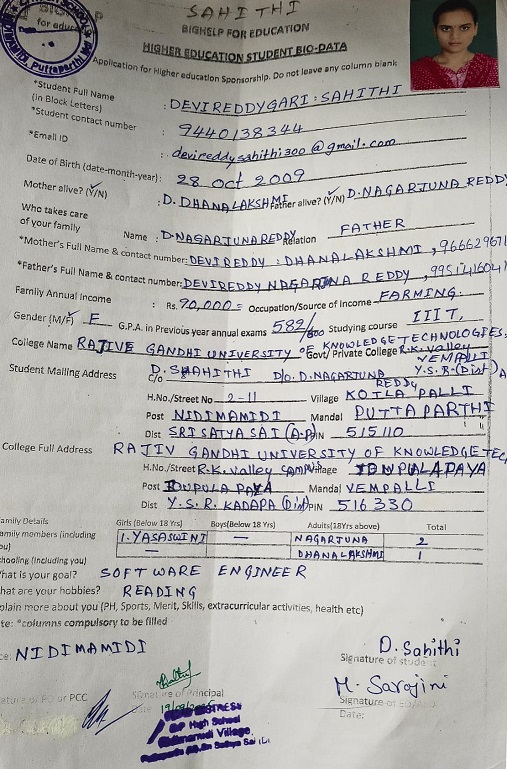 SAHITHI
BIGHELP FOR EDUCATION
HIGHER EDUCATION STUDENT BIO-DATA
Application for Higher education Sponsorship. Do not leave any column blank
*Student Full Name
(in Block Letters) : DEVIREDDYGARI : SAHITHI
*Student contact number : 9440138344
*Email ID : devireddysahithi300@gmail.com
Date of Birth (date-month-year): 28 oct 2009
Mother alive? (Y/N) : D. DHANALAKSHMI Father alive? (Y/N) D. NAGARJUNA REDDY
Who takes care
of your family Name : D. NAGARJUNA REDDY Relation FATHER
*Mother's Full Name & contact number: DEVIREDDY : DHANALAKSHMI ,
*Father's Full Name & contact number: DEVIREDDY NAGARJUNA REDDY ,
Family Annual Income : Rs. 90,000= Occupation/Source of Income FARMING.
Gender (M/F) F G.P.A. in Previous year annual exams 582/600 Studying course IIIT,
College Name RAJIVE GANDHI UNIVERSITY OF KNOWLEDGE TECHNOLOGIES,
Govt/ Private College R.K. Valley
VEMPALLI
Student Mailing Address D. SHAHITHI D/O. D. NAGARJUNA Y.S.R. (Dist)
C/o REDDY
H.No./Street No 2-11 Village KOTLA PALLI
Post NIDIMAMIDI Mandal PUTTAPARTHI
Dist SRI SATYA SAI (A.P) PIN 515110
College Full Address RAJIV GANDHI UNIVERSITY OF KNOWLEDGE TEC
H.No./Street R.K. Valley CAMPUS Village IDUPULAPAYA
Post IDUPULA PAYA Mandal VEMPALLI
Dist Y.S.R. KADAPA (Dist) PIN 516330
Family Details Girls (Below 18 Yrs) Boys(Below 18 Yrs) Adults(18Yrs above) Total
amily members (including 1. YASASWINI — NAGARJUNA 2
ou)
schooling (Including you) — DHANALAKSHMI 1
hat is your goal? SOFTWARE ENGINEER
hat are your hobbies? READING
plain more about you (PH, Sports, Merit, Skills, extracurricular activities, health etc)
te: *columns compulsory to be filled
ce: NIDIMAMIDI
D. Sahithi
Signature of student
M. Sarojini
ature of or PCC
Signature of Principal
Date
Signature of
Date:
High School